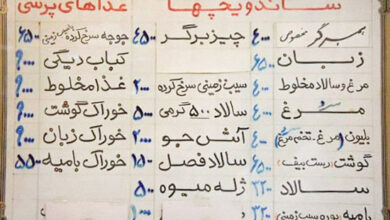 ساندویچها غذاهای پرسی
همبرگر مخصوص ۴۰۰ چیزبرگر ۴۵۰ جوجه سرخ کرده ۶۵۰
زبان ۶۵۰ کباب دیگی ۶۰۰
مرغ و سالاد مخلوط ۴۰۰ سیب زمینی سرخ کرده ۲۰۰۰ غذا مخلوط ۹۰۰
مرغ ۴۰۰ سالاد ۵۰۰ گرمی ۵۰۰ خوراک گوشت ۹۰۰
(مرغ، تخم مرغ) ۴۰۰ آش جو ۲۰۰ خوراک زبان ۹۰۰
گوشت (رست بیف) ۶۵۰ سالاد فصل ۱۵۰ خوراک بامیه ۵۵۰
سالاد ۳۲۰ ژله میوه ۵۰
بامیه پوره سیب زمینی